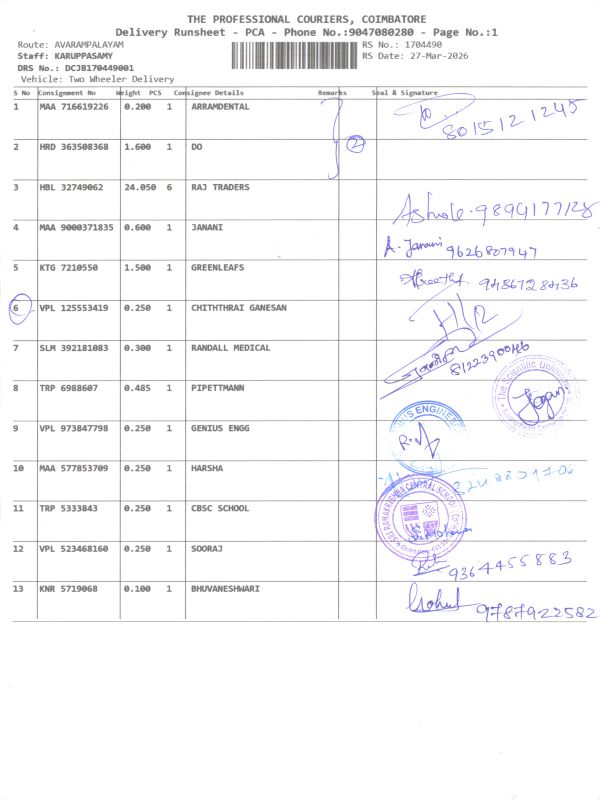 THE PROFESSIONAL COURIERS, COIMBATORE
Delivery Runsheet - PCA - Phone No.:9047080280 - Page No.:1
Route: AVARAMPALAYAM RS No.: 1704490
Staff: KARUPPASAMY RS Date: 27-Mar-2026
DRS No.: DCJB170449001
Vehicle: Two Wheeler Delivery
S No Consignment No Weight PCS Consignee Details Remarks Seal & Signature
1 MAA 716619226 0.200 1 ARRAMDENTAL 8015121245
2 HRD 363508368 1.600 1 DO 2
3 HBL 32749062 24.050 6 RAJ TRADERS
4 MAA 9000371835 0.600 1 JANANI A. Janani 9626807947
5 KTG 7210550 1.500 1 GREENLEAFS
6 VPL 125553419 0.250 1 CHITHTHRAI GANESAN
7 SLM 392181083 0.300 1 RANDALL MEDICAL
8 TRP 6988607 0.485 1 PIPETTMANN The Scientific
9 VPL 973847798 0.250 1 GENIUS ENGG
10 MAA 577853709 0.250 1 HARSHA
11 TRP 5333843 0.250 1 CBSC SCHOOL SRI RAMAKRISHNA CENTRAL SCHOOL
12 VPL 523468160 0.250 1 SOORAJ 9364455883
13 KNR 5719068 0.100 1 BHUVANESHWARI Gokul 9787922582